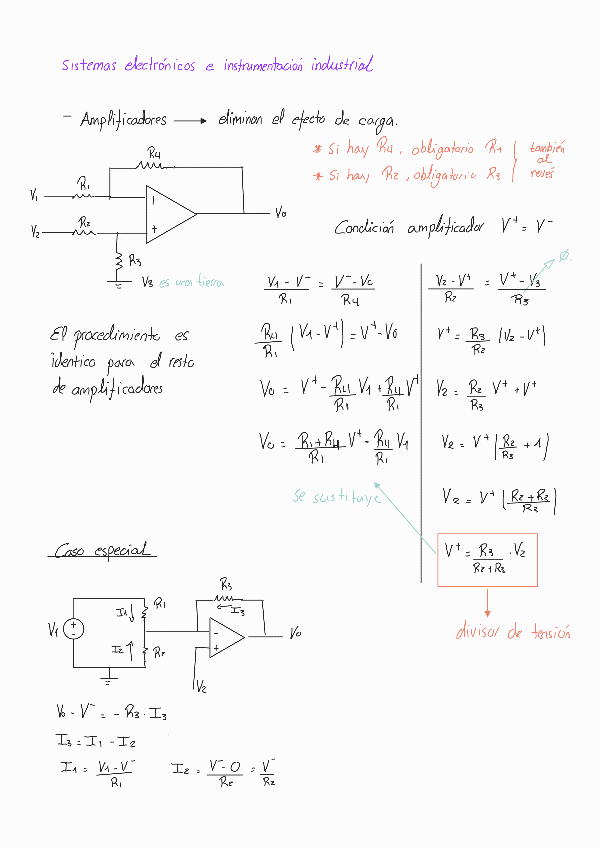 Sistemas electrónicos e instrumentación industrial
- Amplificadores → eliminan el efecto de carga.
* Si hay R4, obligatorio R1
* Si hay R2, obligatorio R3
también
al
revés
R4
R1
V1
V2
R2
V0
R3
V3 es una tierra
Condición amplificador V⁺ = V⁻
(V1 - V⁻)/R1 = (V⁻ - V0)/R4
R4/R1 (V1 - V⁺) = V⁺ - V0
V0 = V⁺ - R4/R1 V1 + R4/R1 V⁺
V0 = (R1 + R4)/R1 V⁺ - R4/R1 V1
(V2 - V⁺)/R2 = (V⁺ - V3)/R3
Ø
V⁺ = R3/R2 (V2 - V⁺)
V2 = R2/R3 V⁺ + V⁺
V2 = V⁺ (R2/R3 + 1)
V2 = V⁺ (R2 + R3)/R3
V⁺ = R3/(R2 + R3) · V2
se sustituye
divisor de tensión
El procedimiento es
identico para el resto
de amplificadores
Caso especial
V1
I1
R1
I2
R2
R3
I3
V0
V2
V0 - V⁻ = - R3 · I3
I3 = I1 - I2
I1 = (V1 - V⁻)/R1
I2 = (V⁻ - 0)/R2 = V⁻/R2